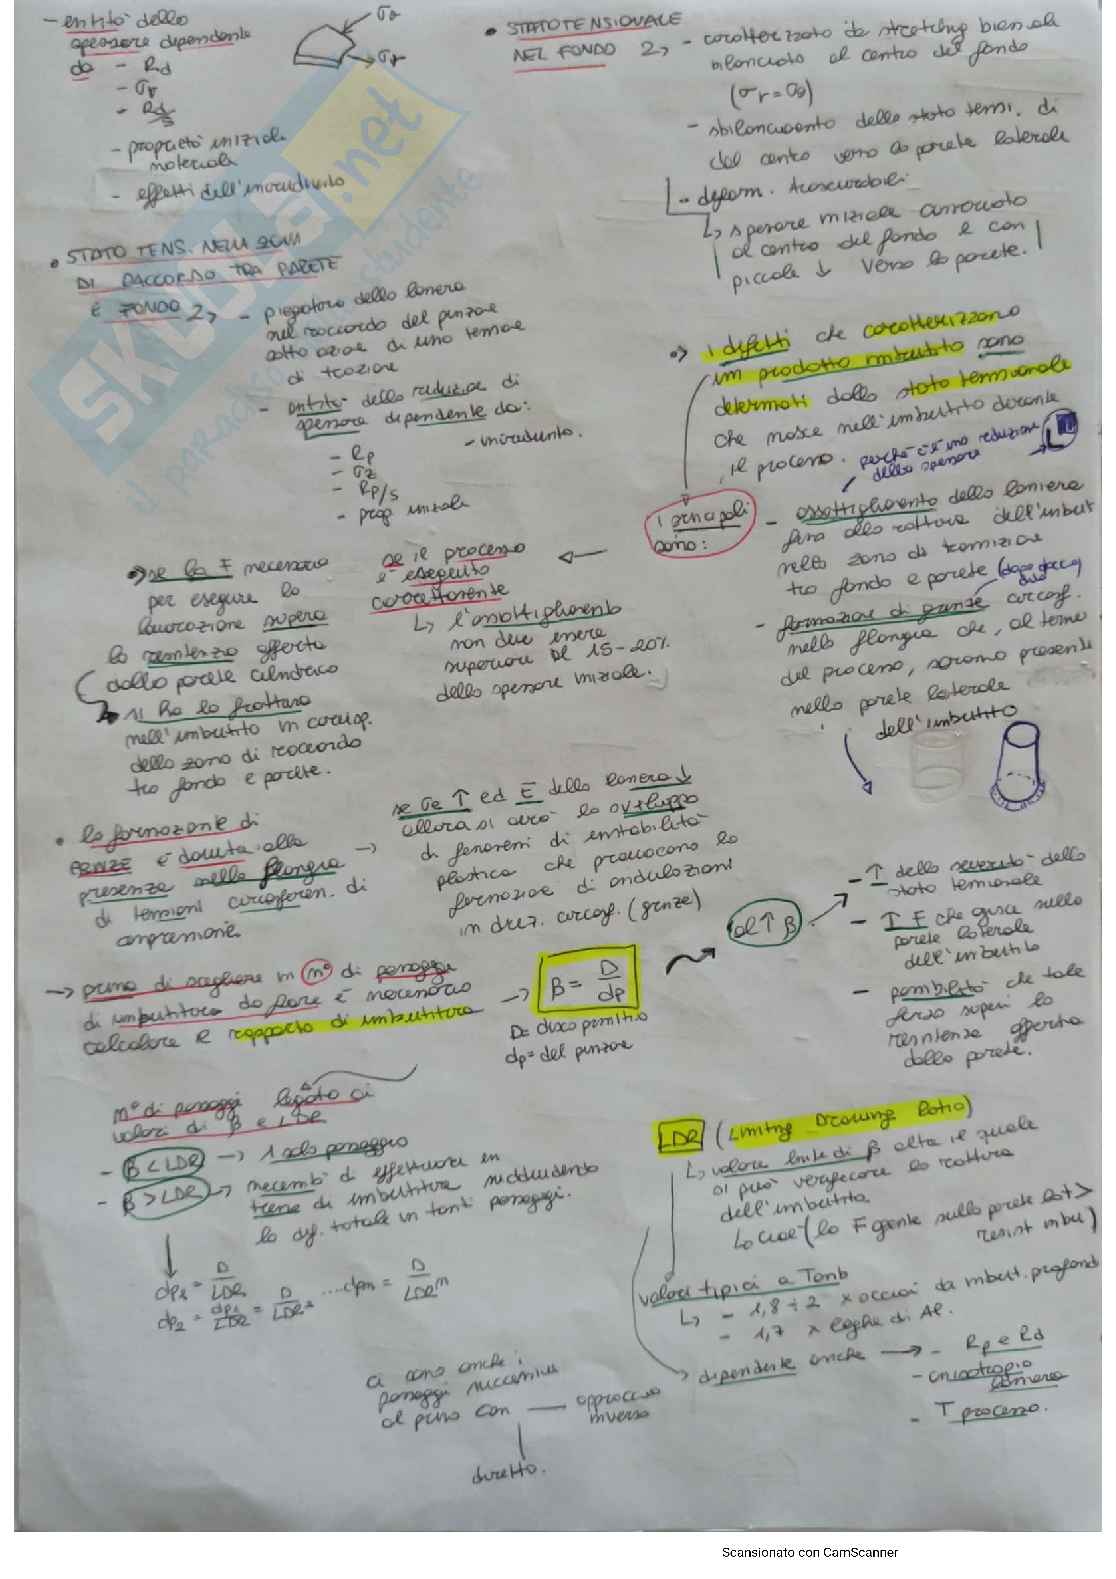 - entità dello
spessore dipendente
da - Rd
- σr
- Rd/s
- proprietà iniziali
materiale
- effetti dell'incrudimento
σθ
σr
• STATO TENSIONALE
NEL FONDO
- caratterizzato da stretching biassiale
bilanciato al centro del fondo
(σr = σθ)
- sbilanciamento dello stato tens. di
dal centro verso la parete laterale
deform. trascurabili
↳ spessore iniziale
al centro del fondo e con
piccola ↓ verso la parete.
• STATO TENS. NELLA ZONA
DI RACCORDO TRA PARETE
E FONDO
- piegatura della lamiera
nel raccordo del punzone
sotto azione di una tensione
di trazione
- entità della riduzione di
spessore dipendente da:
- incrudimento.
- Rp
- σz
- Rp/s
- prop. iniziali
→ i difetti che caratterizzano
un prodotto imbutito sono
determati dallo stato tensionale
che nasce nell'imbutito durante
il processo.
perché c'è una riduzione
dello spessore
i principali
sono:
- assottigliamento della lamiera
fino alla rottura dell'imbut
nella zona di transizione
tra fondo e parete
- formazione di grinze circonf.
nella flangia che, al termine
del processo, saranno presente
nella parete laterale
dell'imbutito
se il processo
è eseguito
correttamente
↳ l'assottigliamento
non deve essere
superiore al 15-20%
dello spessore iniziale.
→ se la F necessaria
per eseguire la
lavorazione supera
la resistenza offerta
dalla parete cilindrica
si ha la frattura
nell'imbutito in corrisp.
della zona di raccordo
tra fondo e parete.
• la formazione di
GRINZE è dovuta alla
presenza nella flangia
di tensioni circonferen. di
compressione.
→ se σθ ↑ ed E della lamiera ↓
allora si avrà lo sviluppo
di fenomeni di instabilità
plastica che provocano la
formazione di ondulazioni
in direz. circonf. (grinze)
→ prima di scegliere in n° di passaggi
di imbutitura da fare è necessario
calcolare il rapporto di imbutitura
→ β = D/dp
D = disco primitivo
dp = del punzone
al ↑ β
- ↑ della severità dello
stato tensionale
- ↑ F che agisce sulla
parete laterale
dell'imbutito
- possibilità che tale
forza superi la
resistenza offerta
dalla parete.
n° di passaggi legato ai
valori di β e LDR
- β < LDR → 1 solo passaggio
- β > LDR → necessità di effettuare un
treno di imbutitura suddividendo
la def. totale in tanti passaggi.
dp1 = D/LDR
dp2 = dp1/LDR = D/LDR² ....dpn = D/LDRⁿ
LDR (Limiting Drawing Ratio)
↳ valore limite di β oltre il quale
si può verificare la rottura
dell'imbutito
↳ cioè (la F agente sulla parete lat >
resist imbu)
valori tipici a Tamb
↳ - 1,8 ÷ 2 x acciai da imbut. profond
- 1,7 x leghe di Al.
→ dipendente anche → - Rp e Rd
- anisotropia
lamiera
- T processo.
ci sono anche i
passaggi successivi
al primo con — approccio
inverso
diretto.
SKUOLA.net
Scansionato con CamScanner